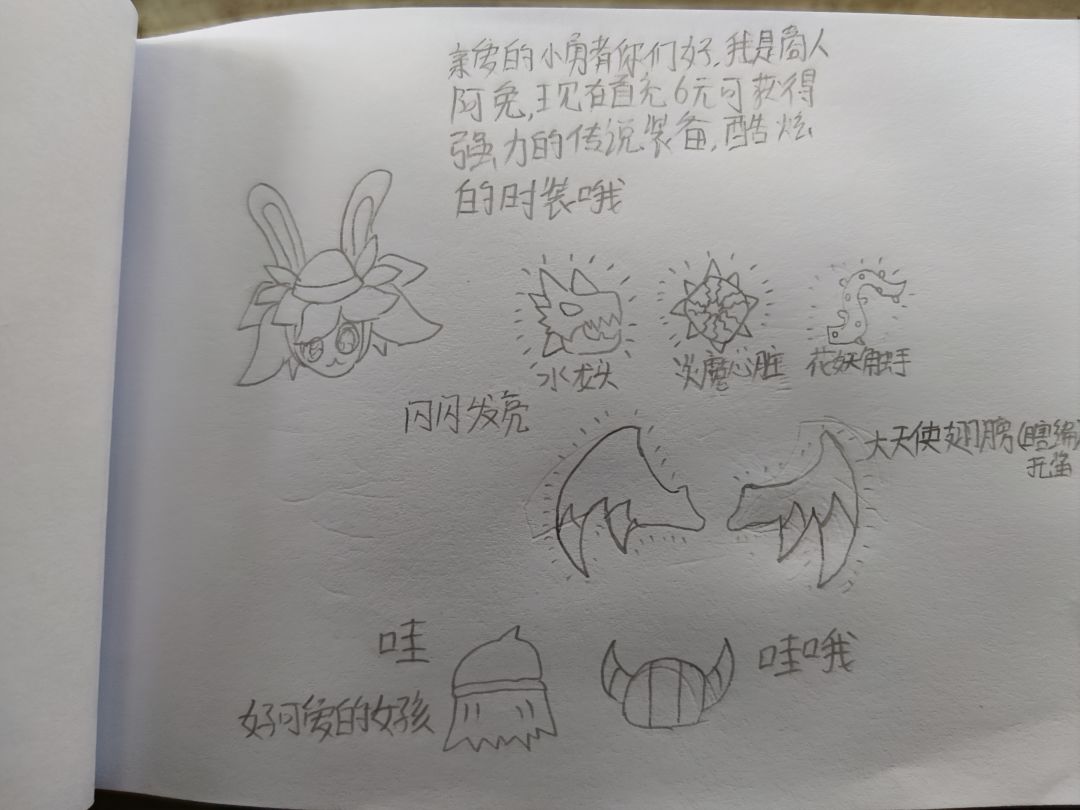 亲爱的小勇者你们好,我是商人
阿兔,现在首充6元可获得
强力的传说装备,酷炫
的时装哦
水龙头
炎魔心脏
花妖触手
闪闪发亮
大天使翅膀(瞎编)
无奖
哇
哇哦
好可爱的女孩